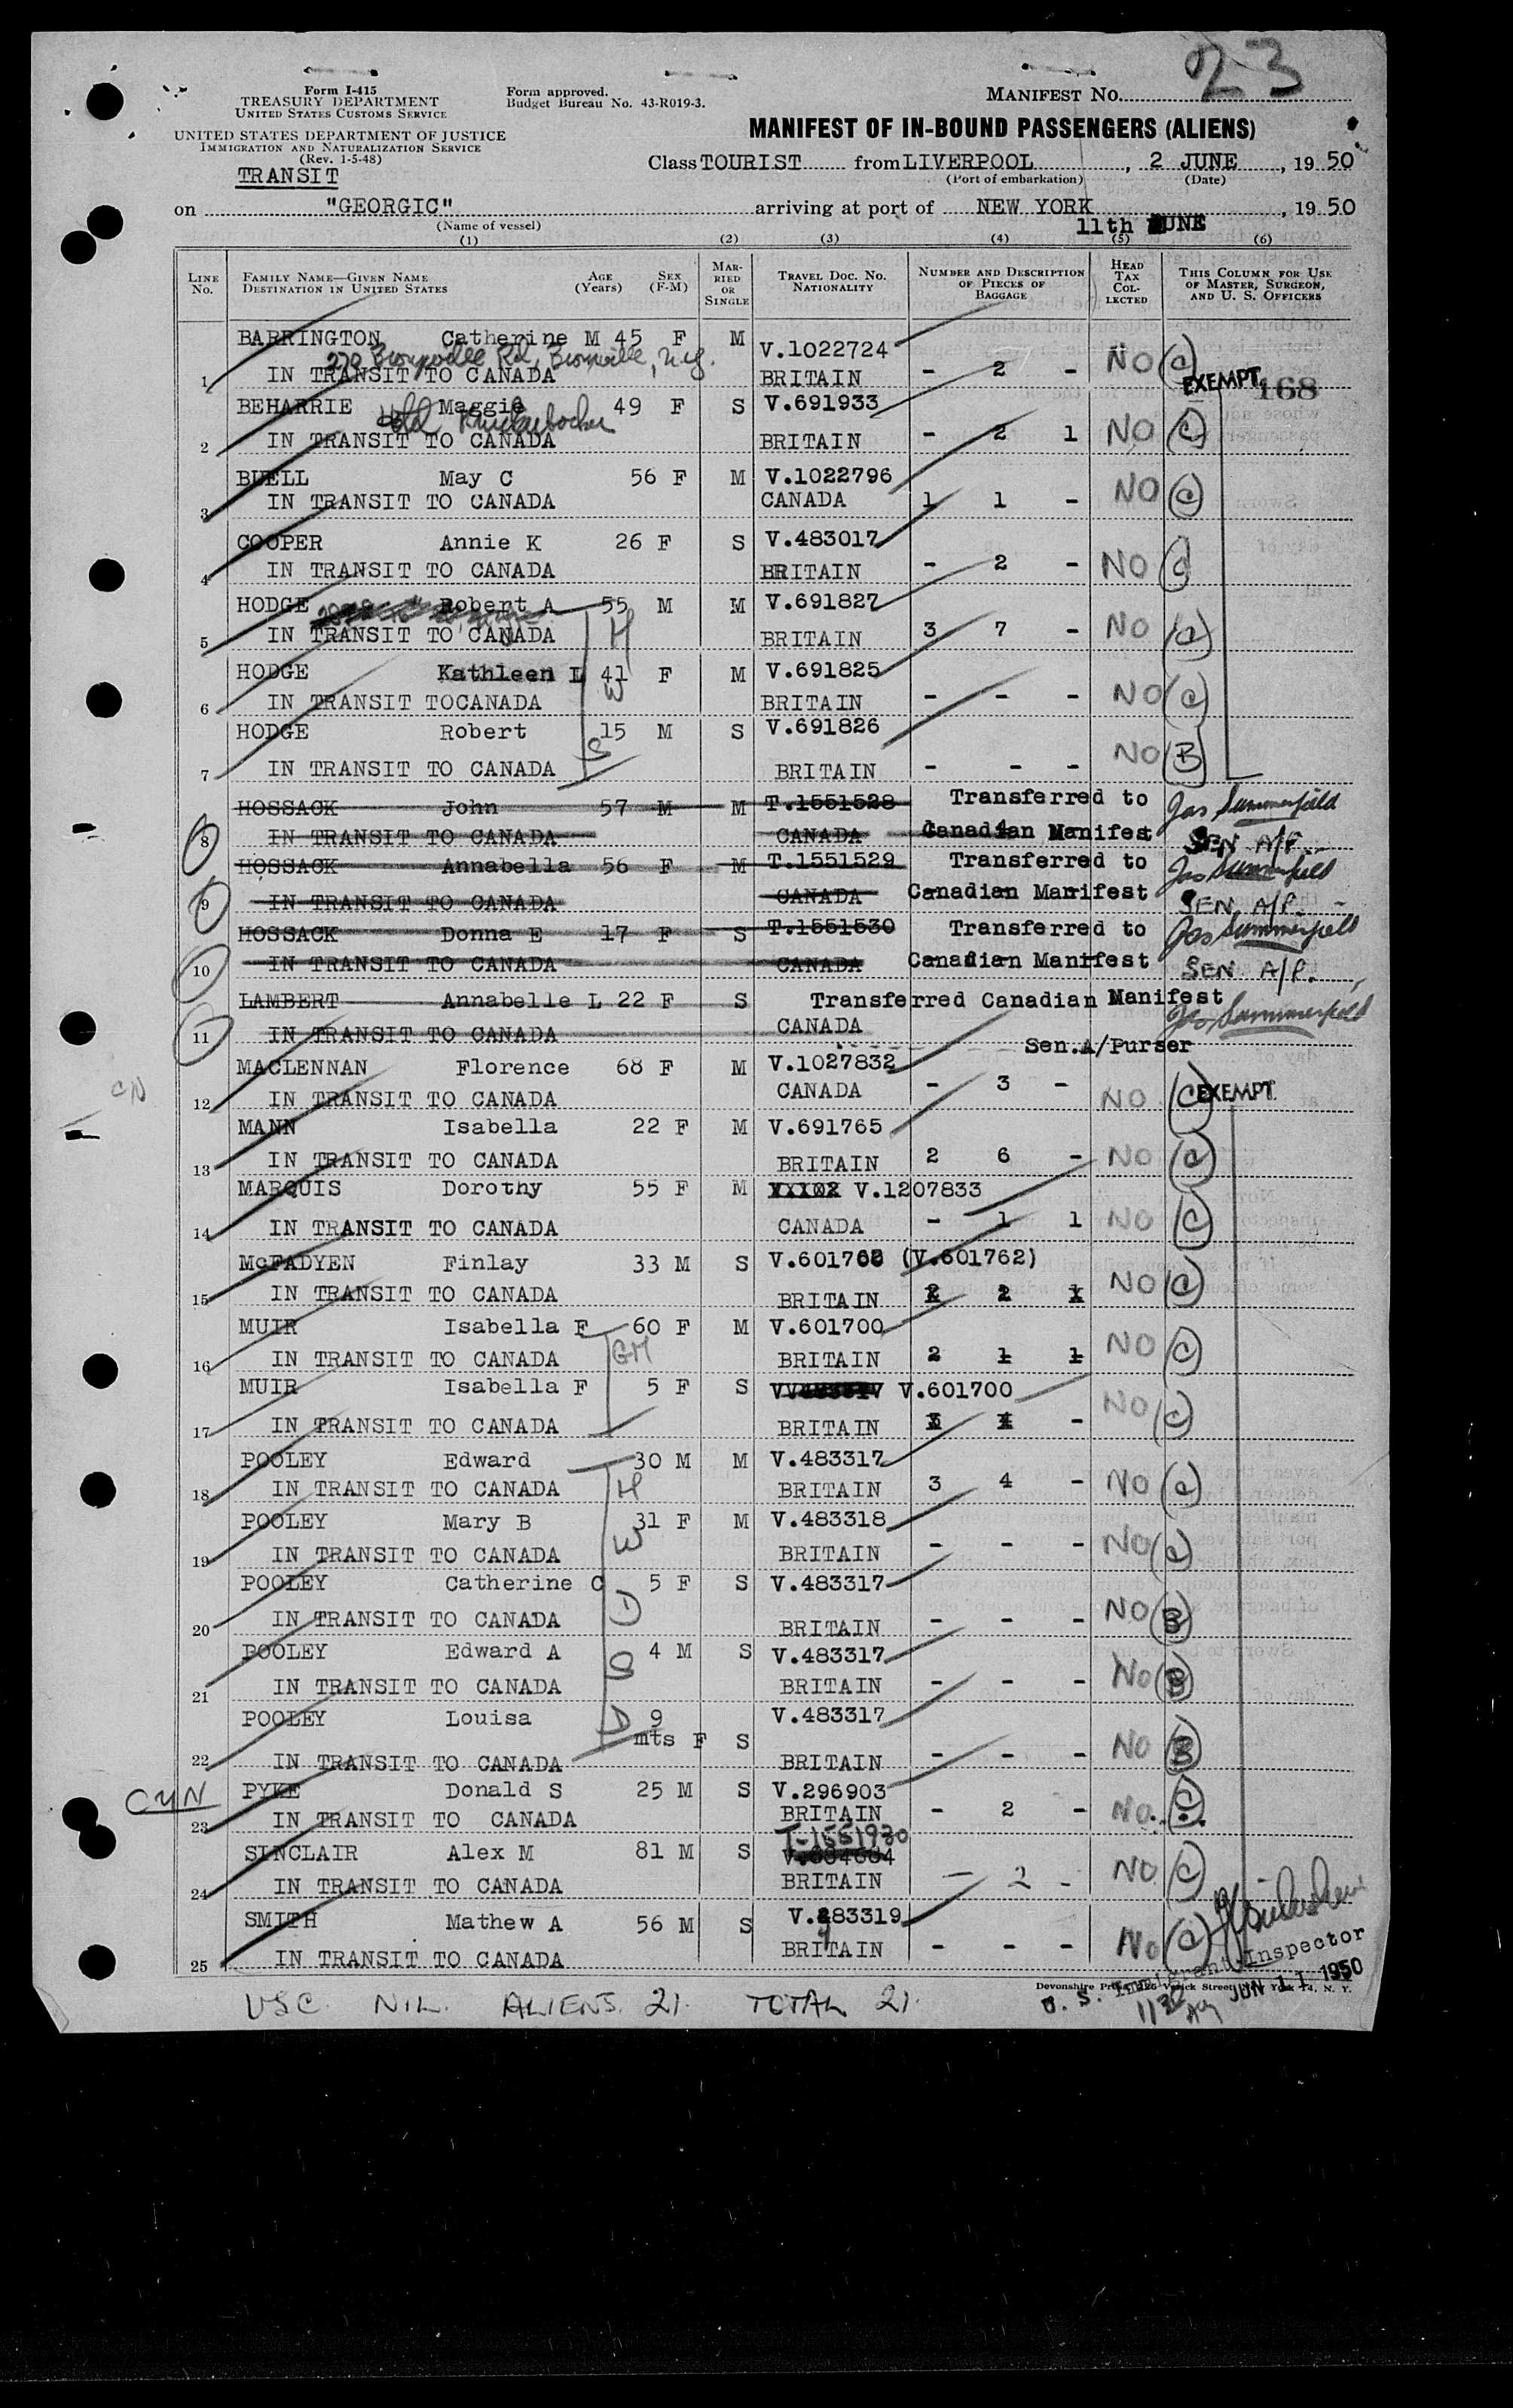 23
Form I-415
TREASURY DEPARTMENT
UNITED STATES CUSTOMS SERVICE
UNITED STATES DEPARTMENT OF JUSTICE
IMMIGRATION AND NATURALIZATION SERVICE
(Rev. 1-5-48)
TRANSIT
Form approved.
Budget Bureau No. 43-R019-3.
MANIFEST NO.
MANIFEST OF IN-BOUND PASSENGERS (ALIENS)
Class TOURIST from LIVERPOOL, 2 JUNE, 19 50
(Port of embarkation) (Date)
on "GEORGIC" arriving at port of NEW YORK, 19 50
(Name of vessel) 11th JUNE
(1) (2) (3) (4) (5) (6)
LINE NO. FAMILY NAME—GIVEN NAME DESTINATION IN UNITED STATES AGE (Years) SEX (F-M) MARRIED OR SINGLE TRAVEL DOC. NO. NATIONALITY NUMBER AND DESCRIPTION OF PIECES OF BAGGAGE HEAD TAX COLLECTED THIS COLUMN FOR USE OF MASTER, SURGEON, AND U. S. OFFICERS
BARRINGTON Catherine M 45 F M V.1022724
270 Bronxville Rd, Bronxville, N.Y.
1 IN TRANSIT TO CANADA BRITAIN - 2 - NO (C) EXEMPT 168
BEHARRIE Maggie 49 F S V.691933
Hotel Knickerbocker
2 IN TRANSIT TO CANADA BRITAIN - 2 1 NO (C)
BUELL May C 56 F M V.1022796
3 IN TRANSIT TO CANADA CANADA 1 1 - NO (C)
COOPER Annie K 26 F S V.483017
4 IN TRANSIT TO CANADA BRITAIN - 2 - NO (C)
HODGE Robert A 55 M M V.691827
5 IN TRANSIT TO CANADA H BRITAIN 3 7 - NO (C)
HODGE Kathleen L 41 F M V.691825
6 IN TRANSIT TOCANADA W BRITAIN - - - NO (C)
HODGE Robert 15 M S V.691826
7 IN TRANSIT TO CANADA S BRITAIN - - - NO (B)
HOSSACK John 57 M M T.1551528 Transferred to Jas Summerfield
8 IN TRANSIT TO CANADA CANADA Canadian Manifest SEN A/P.
HOSSACK Annabella 56 F M T.1551529 Transferred to Jas Summerfield
9 IN TRANSIT TO CANADA CANADA Canadian Manifest SEN A/P.
HOSSACK Donna E 17 F S T.1551530 Transferred to Jas Summerfield
10 IN TRANSIT TO CANADA CANADA Canadian Manifest SEN A/P.
LAMBERT Annabelle L 22 F S Transferred Canadian Manifest
11 IN TRANSIT TO CANADA CANADA Jas Summerfield
Sen.A/Purser
MACLENNAN Florence 68 F M V.1027832
CN
12 IN TRANSIT TO CANADA CANADA - 3 - NO (C) EXEMPT.
MANN Isabella 22 F M V.691765
13 IN TRANSIT TO CANADA BRITAIN 2 6 - NO (C)
MARQUIS Dorothy 55 F M V.1207833
14 IN TRANSIT TO CANADA CANADA - 1 1 NO (C)
McFADYEN Finlay 33 M S (V.601762)
15 IN TRANSIT TO CANADA BRITAIN 2 NO (C)
MUIR Isabella F 60 F M V.601700
16 IN TRANSIT TO CANADA GM BRITAIN 2 1 1 NO (C)
MUIR Isabella F 5 F S V.601700
17 IN TRANSIT TO CANADA BRITAIN - NO (C)
POOLEY Edward 30 M M V.483317
18 IN TRANSIT TO CANADA H BRITAIN 3 4 - NO (C)
POOLEY Mary B 31 F M V.483318
19 IN TRANSIT TO CANADA W BRITAIN - - - NO (C)
POOLEY Catherine C 5 F S V.483317
20 IN TRANSIT TO CANADA D BRITAIN - - - NO (B)
POOLEY Edward A 4 M S V.483317
21 IN TRANSIT TO CANADA S BRITAIN - - - NO (B)
POOLEY Louisa 9 mts F S V.483317
22 IN TRANSIT TO CANADA D BRITAIN - - - NO (B)
PYKE Donald S 25 M S V.296903
23 IN TRANSIT TO CANADA BRITAIN - 2 - NO (C)
SINCLAIR Alex M 81 M S T-1551930
24 IN TRANSIT TO CANADA BRITAIN - 2 - NO (C)
SMITH Mathew A 56 M S V.483319
25 IN TRANSIT TO CANADA BRITAIN - - - NO (C)
U. S. Immigrant Inspector
JUN 11 1950
USC. NIL. ALIENS. 21. TOTAL 21.